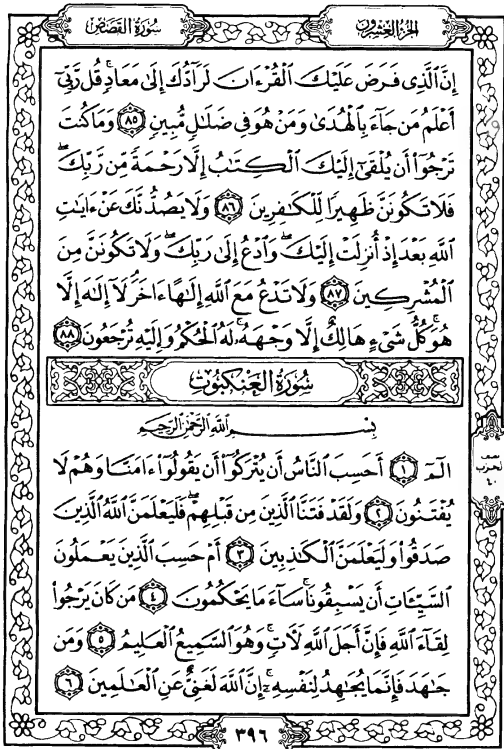 سُورَةُ القَصَصِ
الجُزءُ العِشْرُونَ
إِنَّ ٱلَّذِى فَرَضَ عَلَيْكَ ٱلْقُرْءَانَ لَرَآدُّكَ إِلَىٰ مَعَادٍۚ قُل رَّبِّىٓ
أَعْلَمُ مَن جَآءَ بِٱلْهُدَىٰ وَمَنْ هُوَ فِى ضَلَٰلٍ مُّبِينٍ ٨٥ وَمَا كُنتَ
تَرْجُوٓا۟ أَن يُلْقَىٰٓ إِلَيْكَ ٱلْكِتَٰبُ إِلَّا رَحْمَةً مِّن رَّبِّكَۖ
فَلَا تَكُونَنَّ ظَهِيرًا لِّلْكَٰفِرِينَ ٨٦ وَلَا يَصُدُّنَّكَ عَنْ ءَايَٰتِ
ٱللَّهِ بَعْدَ إِذْ أُنزِلَتْ إِلَيْكَۖ وَٱدْعُ إِلَىٰ رَبِّكَۖ وَلَا تَكُونَنَّ مِنَ
ٱلْمُشْرِكِينَ ٨٧ وَلَا تَدْعُ مَعَ ٱللَّهِ إِلَٰهًا ءَاخَرَۘ لَآ إِلَٰهَ إِلَّا
هُوَۚ كُلُّ شَىْءٍ هَالِكٌ إِلَّا وَجْهَهُۥۚ لَهُ ٱلْحُكْمُ وَإِلَيْهِ تُرْجَعُونَ ٨٨
سُورَةُ العَنْكَبُوتِ
بِسْمِ ٱللَّهِ ٱلرَّحْمَٰنِ ٱلرَّحِيمِ
الٓمٓ ١ أَحَسِبَ ٱلنَّاسُ أَن يُتْرَكُوٓا۟ أَن يَقُولُوٓا۟ ءَامَنَّا وَهُمْ لَا
يُفْتَنُونَ ٢ وَلَقَدْ فَتَنَّا ٱلَّذِينَ مِن قَبْلِهِمْۖ فَلَيَعْلَمَنَّ ٱللَّهُ ٱلَّذِينَ
صَدَقُوا۟ وَلَيَعْلَمَنَّ ٱلْكَٰذِبِينَ ٣ أَمْ حَسِبَ ٱلَّذِينَ يَعْمَلُونَ
ٱلسَّيِّـَٔاتِ أَن يَسْبِقُونَاۚ سَآءَ مَا يَحْكُمُونَ ٤ مَن كَانَ يَرْجُوا۟
لِقَآءَ ٱللَّهِ فَإِنَّ أَجَلَ ٱللَّهِ لَءَاتٍۚ وَهُوَ ٱلسَّمِيعُ ٱلْعَلِيمُ ٥ وَمَن
جَٰهَدَ فَإِنَّمَا يُجَٰهِدُ لِنَفْسِهِۦٓۚ إِنَّ ٱللَّهَ لَغَنِىٌّ عَنِ ٱلْعَٰلَمِينَ ٦
نصف
الحزب
٤٠
٣٩٦